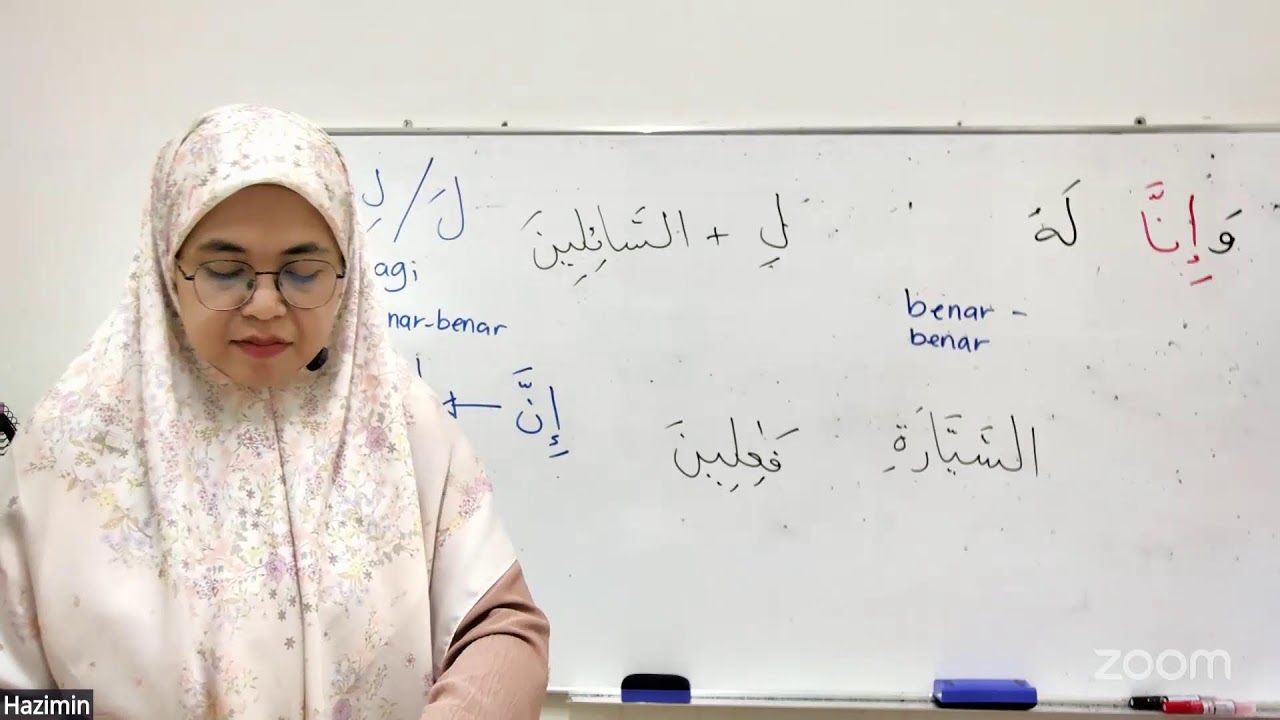 وَإِنَّا لَهُ
لِ + السَّائِلِينَ
لَ / لِ
agi
nar-benar
benar -
benar
إِنَّ
السَّيَّارَةِ فَٰعِلِينَ
zoom
Hazimin